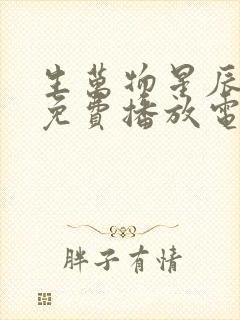 生萬物星辰
免費播放電
胖子有情